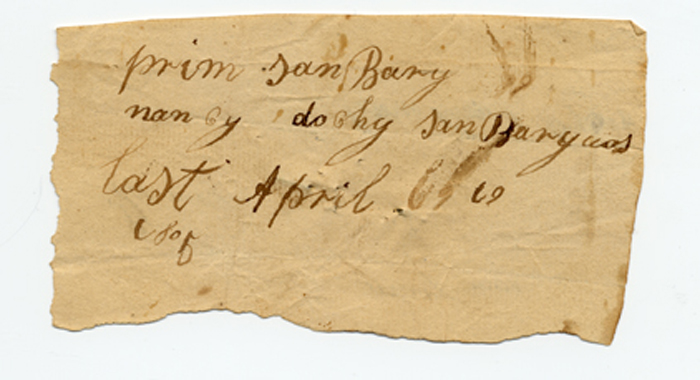 prim san Bary
nancy dochy san Bary was
last April 69 69
180f